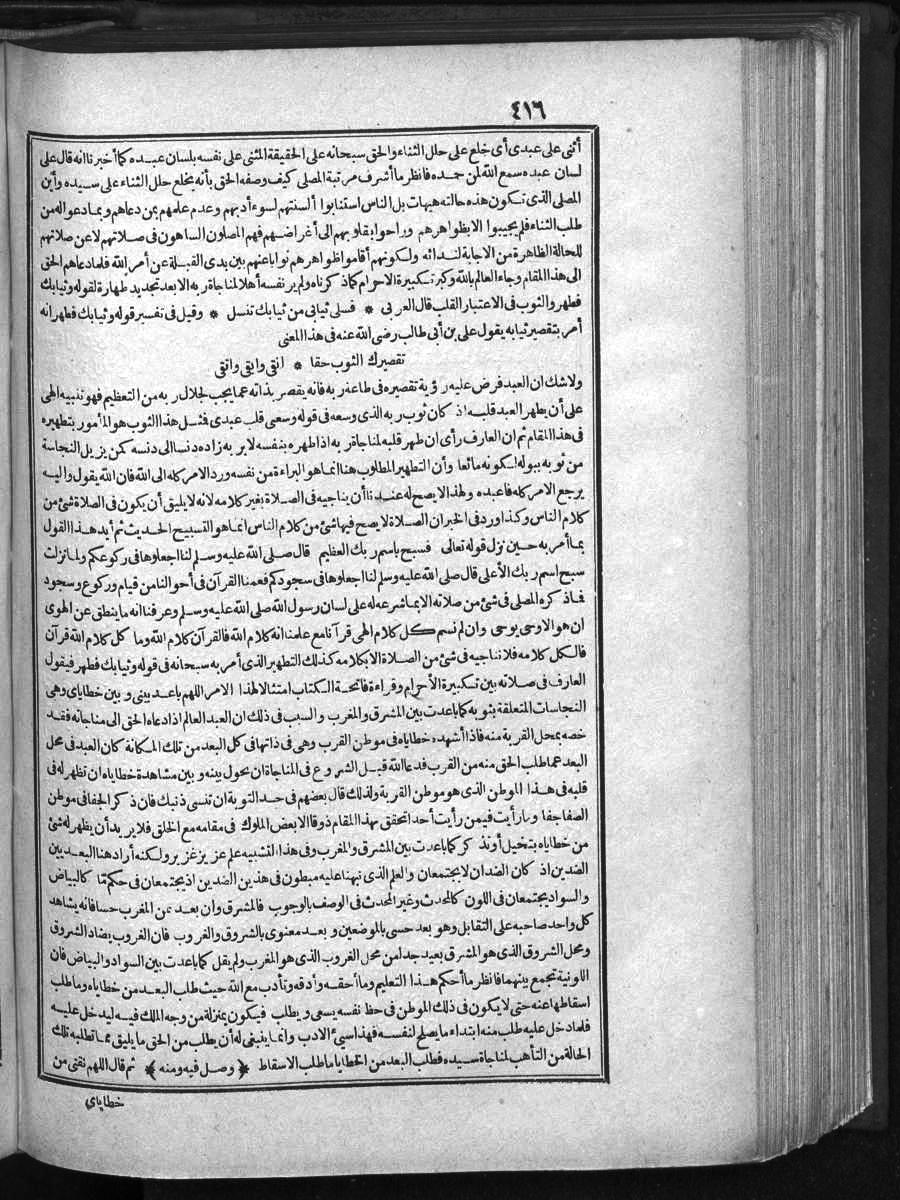 ٤١٦
أثنى على عبدى أى خلع على حلل الثناء والحق سبحانه على الحقيقة المثنى على نفسه بلسان عبده كما أخبرنا انه قال على
لسان عبده سمع الله لمن حمده فانظر ما أشرف مرتبة المصلى كيف وصفه الحق بأنه يخلع حلل الثناء على سيده وأين
المصلى الذى تكون هذه حالته هيهات بل الناس استنابوا ألسنتهم لسوء أدبهم وعدم علمهم بمن دعاهم وبما دعوا له من
طلب الثناء فلم يجيبوا الا بظواهرهم وراحوا بقلوبهم الى أغراضهم فهم المصلون الساهون فى صلاتهم لا عن صلاتهم
للحالة الظاهرة من الاجابة لندائه ولكونهم أقاموا ظواهرهم نوابا عنهم بين يدى القبلة عن أمر الله فلما دعاهم الحق
الى هذا المقام وجاء العالم بالله وكبر تكبيرة الاحرام كما ذكرناه ولم ير نفسه أهلا لمناجاة ربه الا بعد تجديد طهارة لقوله وثيابك
فطهر والثوب فى الاعتبار القلب قال العربى * فسلى ثيابى من ثيابك تنسل * وقيل فى تفسير قوله وثيابك فطهر انه
أمر بتقصير ثيابه يقول على بن أبى طالب رضى الله عنه فى هذا المعنى
تقصيرك الثوب حقا * انقى وابقى واتقى
ولا شك ان العبد فرض عليه رؤية تقصيره فى طاعة ربه فانه يقصر بذاته عما يجب لجلال ربه من التعظيم فهو تنبيه الهى
على أن يطهر العبد قلبه اذ كان ثوب ربه الذى وسعه فى قوله وسعنى قلب عبدى فمثل هذا الثوب هو المأمور بتطهيره
فى هذا المقام ثم ان العارف رأى ان طهر قلبه لمناجاة ربه اذا طهره بنفسه لا بربه زاده دنسا الى دنسه كمن يزيل النجاسة
من ثوبه ببوله لكونه مائعا وأن التطهير المطلوب هنا انما هو البراءة من نفسه ورد الامر كله الى الله فان الله يقول واليه
يرجع الامر كله فاعبده ولهذا لا يصح له عندنا أن يناجيه فى الصلاة بغير كلامه لانه لا يليق أن يكون فى الصلاة شئ من
كلام الناس وكذا ورد فى الخبر ان الصلاة لا يصح فيها شئ من كلام الناس انما هو التسبيح الحديث ثم أيد هذا القول
بما أمر به حين نزل قوله تعالى فسبح باسم ربك العظيم قال صلى الله عليه وسلم لنا اجعلوها فى ركوعكم ولما نزلت
سبح اسم ربك الأعلى قال صلى الله عليه وسلم لنا اجعلوها فى سجودكم فعمنا القرآن فى أحوالنا من قيام وركوع وسجود
فما ذكره المصلى فى شئ من صلاته الا بما شرعه له على لسان رسول الله صلى الله عليه وسلم وعرفنا انه ما ينطق عن الهوى
ان هو الا وحى يوحى وان لم نسم كل كلام الهى قرآنا مع علمنا انه كلام الله فالقرآن كلام الله وما كل كلام الله قرآن
فالكل كلامه فلا نناجيه فى شئ من الصلاة الا بكلامه كذلك التطهير الذى أمر به سبحانه فى قوله وثيابك فطهر فيقول
العارف فى صلاته بين تكبيرة الأحرام وقراءة فاتحة الكتاب امتثالا لهذا الامر اللهم باعد بينى وبين خطاياى وهى
النجاسات المتعلقة بثوبه كما باعدت بين المشرق والمغرب والسبب فى ذلك ان العبد العالم اذا دعاه الحق الى مناجاته فقد
خصه بمحل القربة منه فاذا أشهده خطاياه فى موطن القرب وهى فى ذاتها فى كل البعد من تلك المكانة كان العبد فى محل
البعد عما طلب الحق منه من القرب فدعا الله قبل الشروع فى المناجاة ان يحول بينه وبين مشاهدة خطاياه ان تظهر له فى
قلبه فى هذا الموطن الذى هو موطن القربة ولذلك قال بعضهم فى حد التوبة ان تنسى ذنبك فان ذكر الجفا فى موطن
الصفا جفا وما رأيت فيمن رأيت أحدا تحقق بهذا المقام ذوقا الا بعض الملوك فى مقامه مع الخلق فلا يريد أن يظهر له شئ
من خطاياه بتخيل أو تذكر كما باعدت بين المشرق والمغرب وفى هذا التشبيه علم عزيز غزير ولكنه أراد هنا البعد بين
الضدين اذ كان الضدان لا يجتمعان والعلم الذى نبهنا عليه مبطون فى هذين الضدين اذ يجتمعان فى حكم ما كالبياض
والسواد يجتمعان فى اللون كالمحدث وغير المحدث فى الوصف بالوجوب فالمشرق وان بعد من المغرب حسا فانه يشاهد
كل واحد صاحبه على التقابل وهو بعد حسى بالموضعين وبعد معنوى بالشروق والغروب فان الغروب يضاد الشروق
ومحل الشروق الذى هو المشرق بعيد جدا من محل الغروب الذى هو المغرب ولم يقل كما باعدت بين السواد والبياض فان
اللونية تجمع بينهما فانظر ما أحكم هذا التعليم وما أحقه وأدقه وتأدب مع الله حيث طلب البعد من خطاياه وما طلب
اسقاطها عنه حتى لا يكون فى ذلك الموطن فى حظ نفسه يسعى ويطلب فيكون بمنزلة من وجه الملك فيه ليدخل عليه
فلما دخل عليه طلب منه ابتداء ما يصلح لنفسه فهذا سيئ الادب وانما ينبغى له أن يطلب من الحق ما يليق بما تطلبه تلك
الحالة من التأهب لمناجاة سيده فطلب البعد من الخطايا ما طلب الاسقاط ﴿ وصل فيه ومنه ﴾ ثم قال اللهم نقنى من
خطاياى